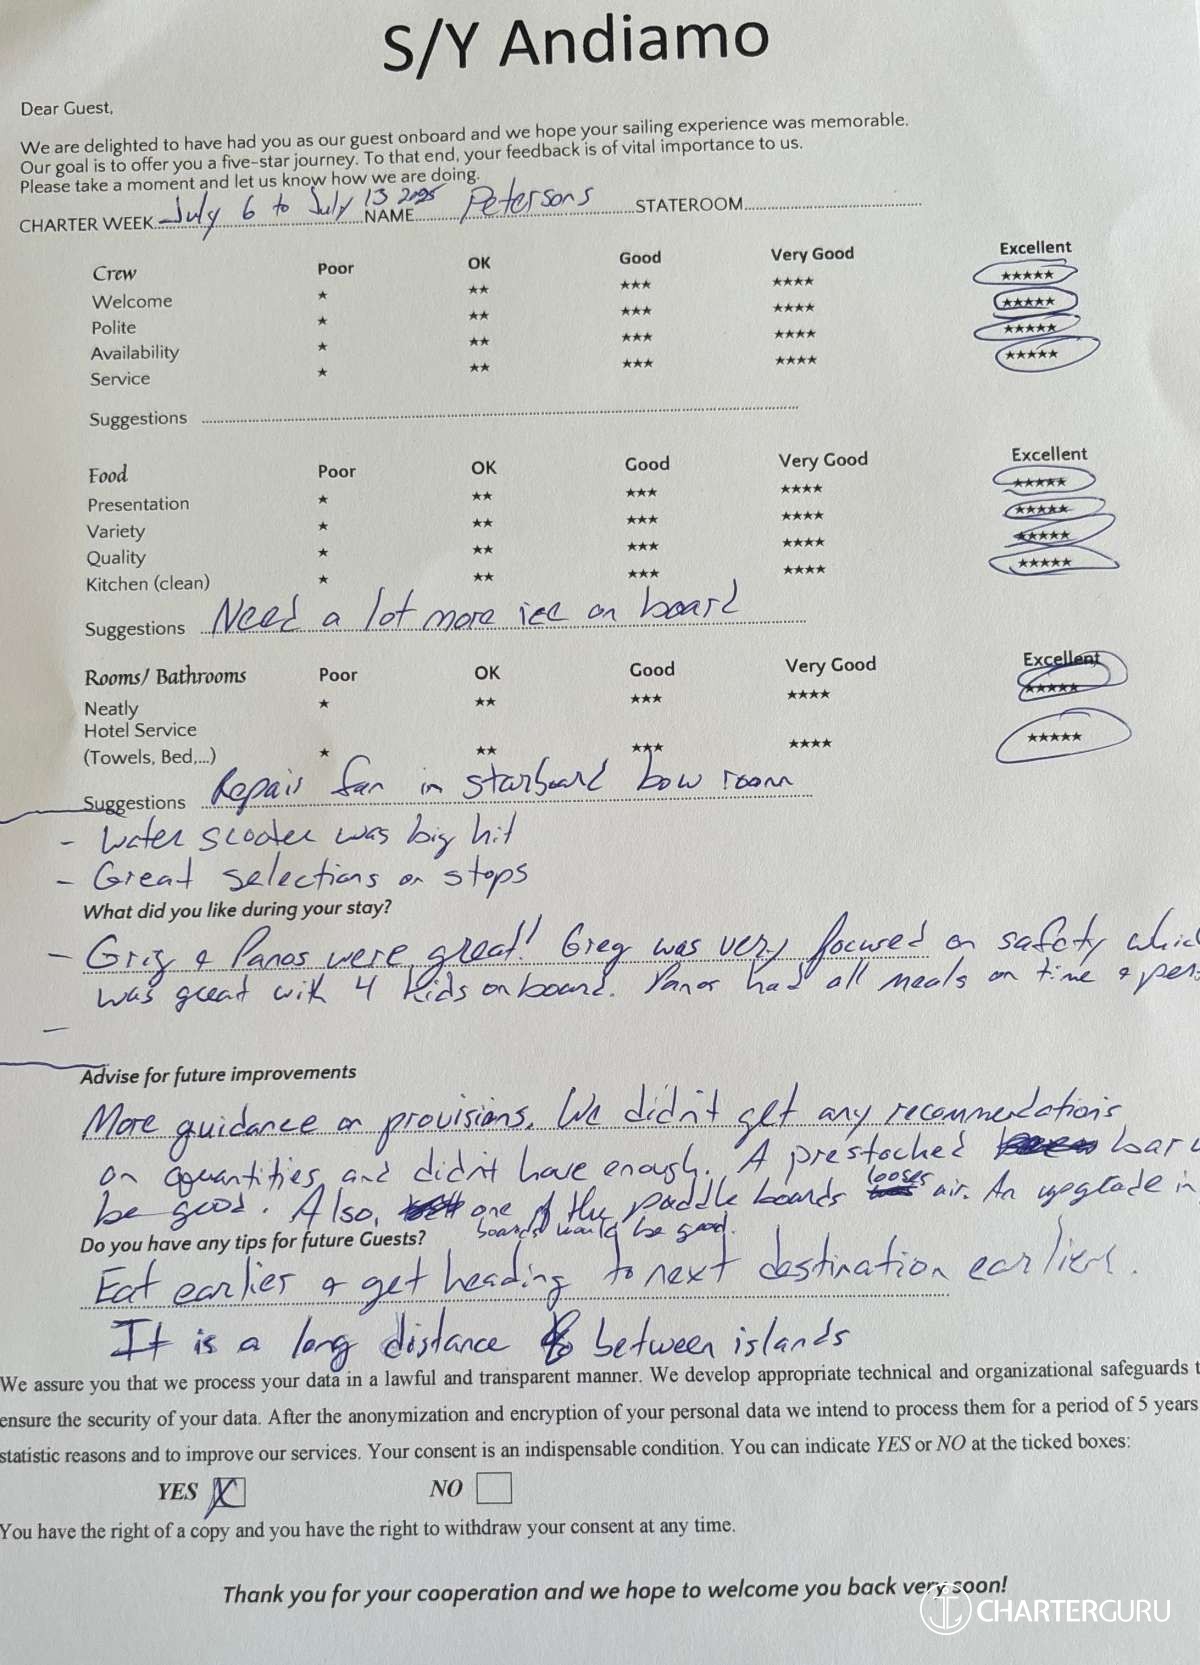 S/Y Andiamo
Dear Guest,
We are delighted to have had you as our guest onboard and we hope your sailing experience was memorable.
Our goal is to offer you a five-star journey. To that end, your feedback is of vital importance to us.
Please take a moment and let us know how we are doing.
CHARTER WEEK July 6 to July 13 2025 NAME Petersons STATEROOM
Crew Poor OK Good Very Good Excellent
Welcome ★ ★★ ★★★ ★★★★ ★★★★★
Polite ★ ★★ ★★★ ★★★★ ★★★★★
Availability ★ ★★ ★★★ ★★★★ ★★★★★
Service ★ ★★ ★★★ ★★★★ ★★★★★
Suggestions
Food Poor OK Good Very Good Excellent
Presentation ★ ★★ ★★★ ★★★★ ★★★★★
Variety ★ ★★ ★★★ ★★★★ ★★★★★
Quality ★ ★★ ★★★ ★★★★ ★★★★★
Kitchen (clean) ★ ★★ ★★★ ★★★★ ★★★★★
Suggestions Need a lot more ice on board
Rooms/ Bathrooms Poor OK Good Very Good Excellent
Neatly ★ ★★ ★★★ ★★★★ ★★★★★
Hotel Service
(Towels, Bed,...) ★ ★★ ★★★ ★★★★ ★★★★★
Suggestions Repair fan in starboard bow room
- Water scooter was big hit
- Great selections on stops
What did you like during your stay?
- Grig & Panos were great! Greg was very focused on safety whic
was great with 4 kids on board. Panos had all meals on time & per
-
Advise for future improvements
More guidance on provisions. We didn't get any recommendations
on quantities and didn't have enough. A prestocked bar
be good. Also, one of the paddle boards looses air. An upgrade in
boards would be good.
Do you have any tips for future Guests?
Eat earlier & get heading to next destination earlier.
It is a long distance between islands
We assure you that we process your data in a lawful and transparent manner. We develop appropriate technical and organizational safeguards t
ensure the security of your data. After the anonymization and encryption of your personal data we intend to process them for a period of 5 years
statistic reasons and to improve our services. Your consent is an indispensable condition. You can indicate YES or NO at the ticked boxes:
YES X NO
You have the right of a copy and you have the right to withdraw your consent at any time.
Thank you for your cooperation and we hope to welcome you back very soon!
CHARTERGURU